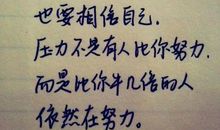 也要相信自己.
压力不是有人比你努力,
而是比你牛几倍的人
依然在努力。